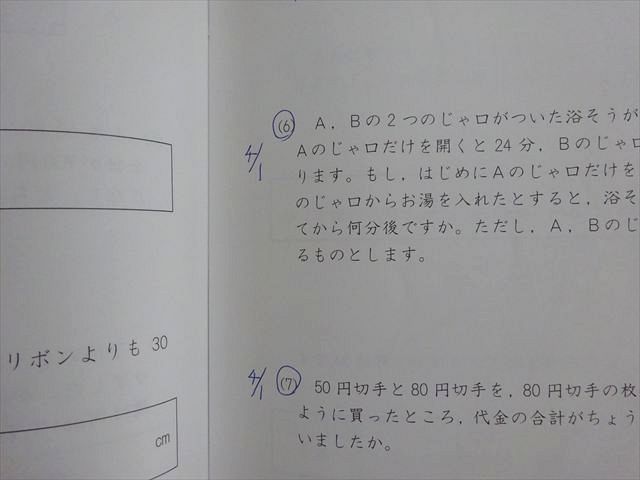 リボンよりも 30
cm
4/1
(6) A,Bの2つのじゃ口がついた浴そうが
Aのじゃ口だけを開くと24分,Bのじゃ口
ります。もし,はじめにAのじゃ口だけを
のじゃ口からお湯を入れたとすると,浴そ
てから何分後ですか。ただし,A,Bのじ
るものとします。
4/1
(7) 50円切手と80円切手を,80円切手の枚
ように買ったところ,代金の合計がちょう
いましたか。